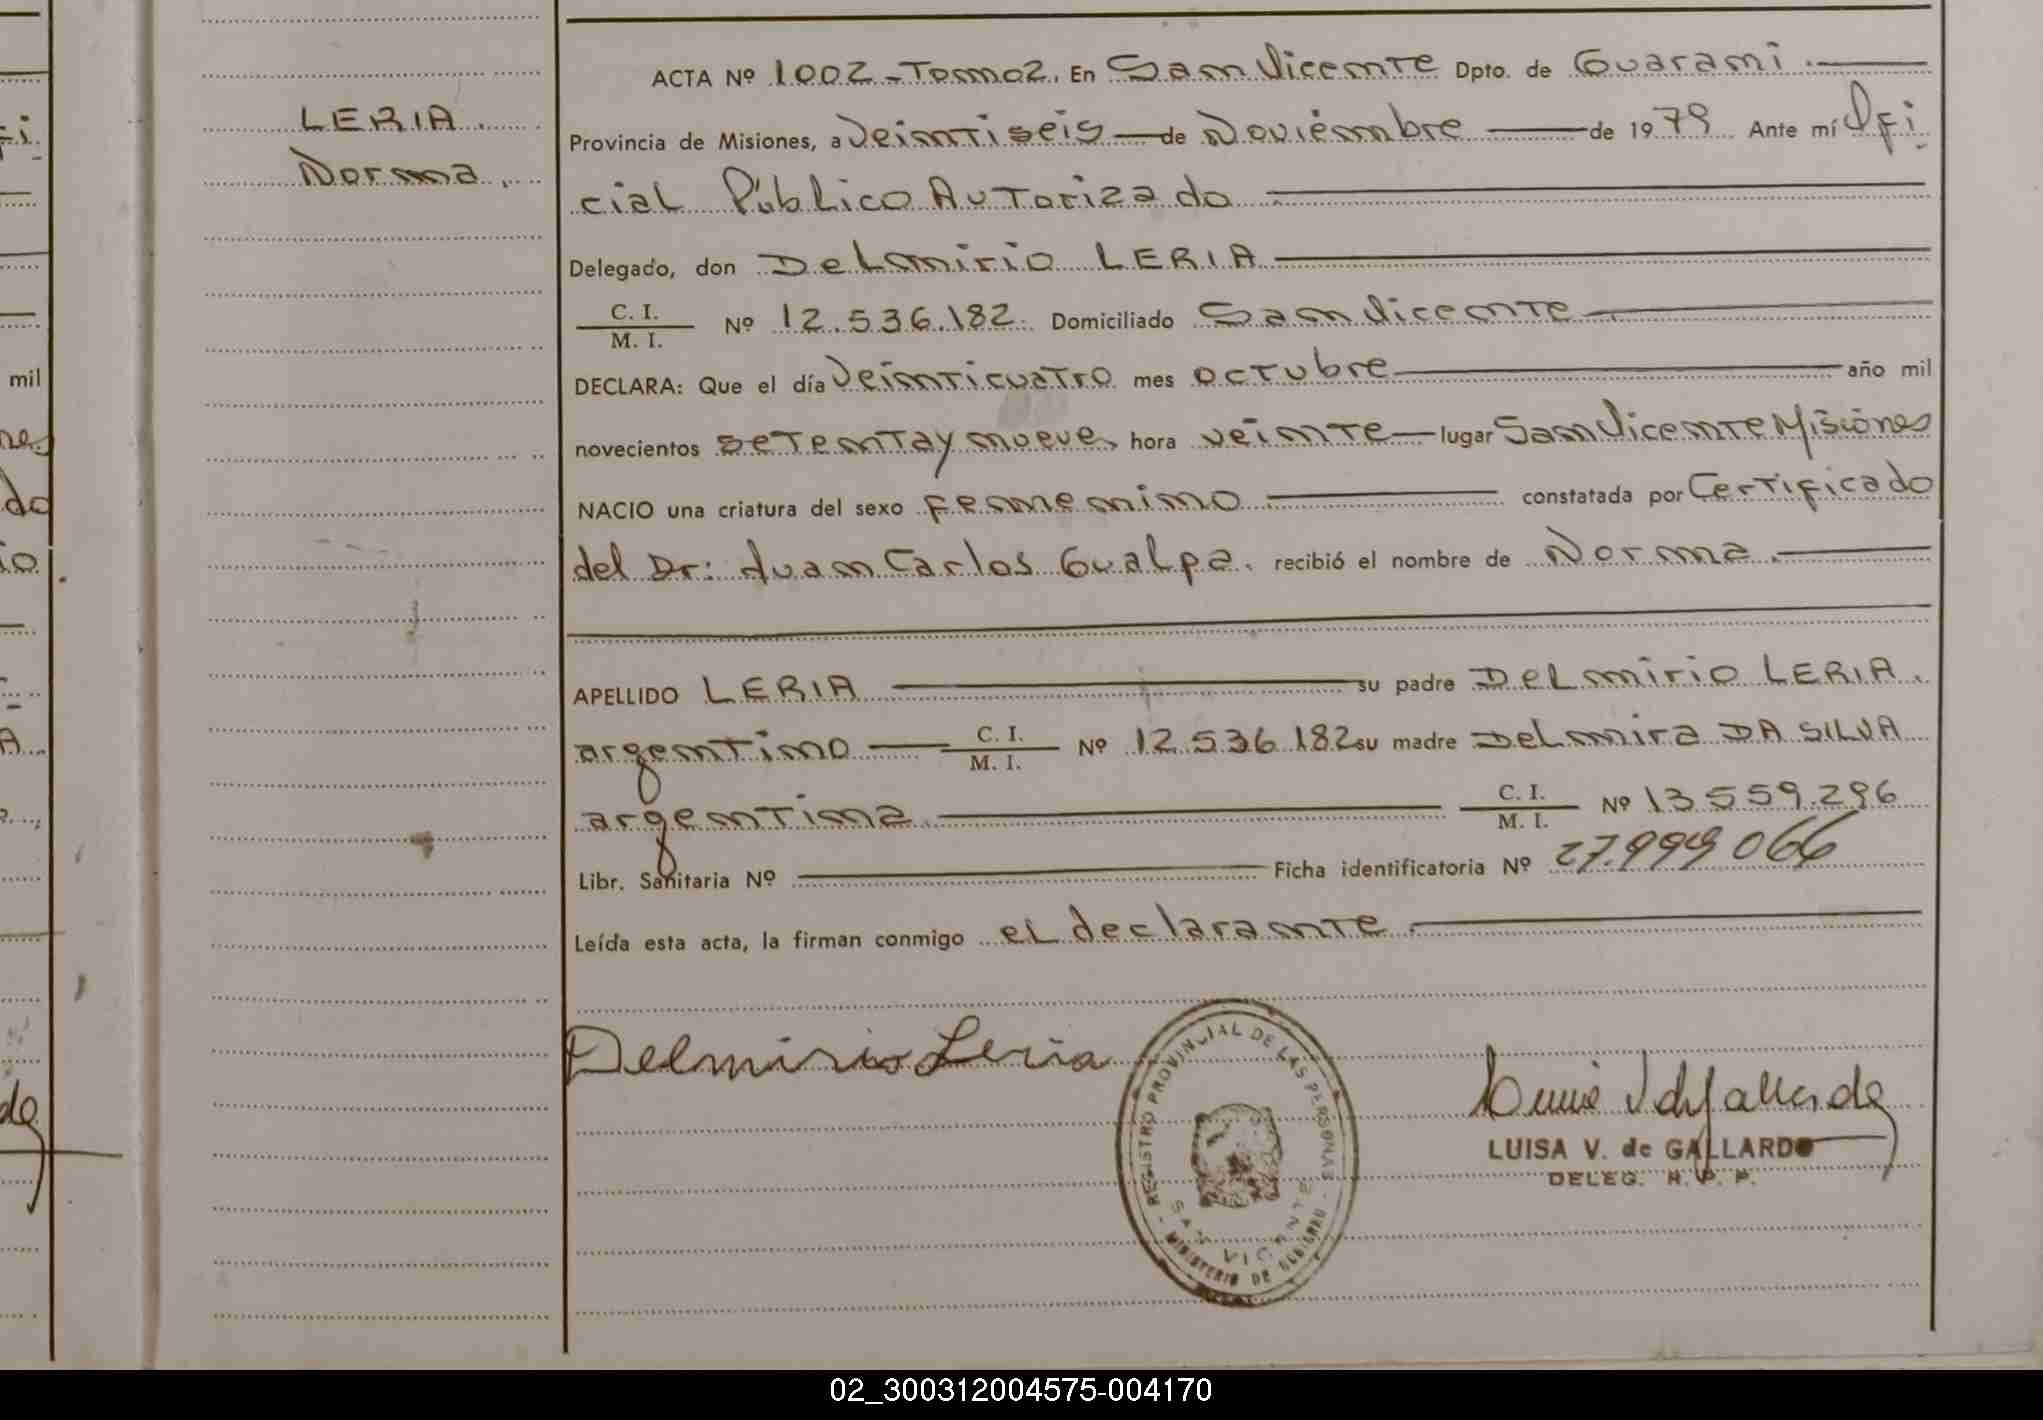 LERIA.
Norma.
ACTA Nº 1002 - Tomo 2. En San Vicente Dpto. de Guarani.
Provincia de Misiones, a Veintiseis de Noviembre de 1979 Ante mí Ofi
cial Público Autorizado
Delegado, don Delmirio LERIA
C. I.
M. I. Nº 12.536.182. Domiciliado San Vicente
DECLARA: Que el día Veinticuatro mes octubre año mil
novecientos setenta y nueve, hora veinte lugar San Vicente Misiones
NACIO una criatura del sexo femenino constatada por Certificado
del Dr: Juan Carlos Gualpa. recibió el nombre de Norma.
APELLIDO LERIA su padre Delmirio LERIA.
argentino C. I.
M. I. Nº 12.536.182 su madre Delmira DA SILVA
argentina C. I.
M. I. Nº 13.559.296
Libr. Sanitaria Nº Ficha identificatoria Nº 27.999.066
Leída esta acta, la firman conmigo el declarante.
Delmirio Leria
REGISTRO PROVINCIAL DE LAS PERSONAS
SAN VICENTE
MINISTERIO DE GOBIERNO
LUISA V. de GALLARDO
DELEG. R. P. P.
mil
do
02_300312004575-004170